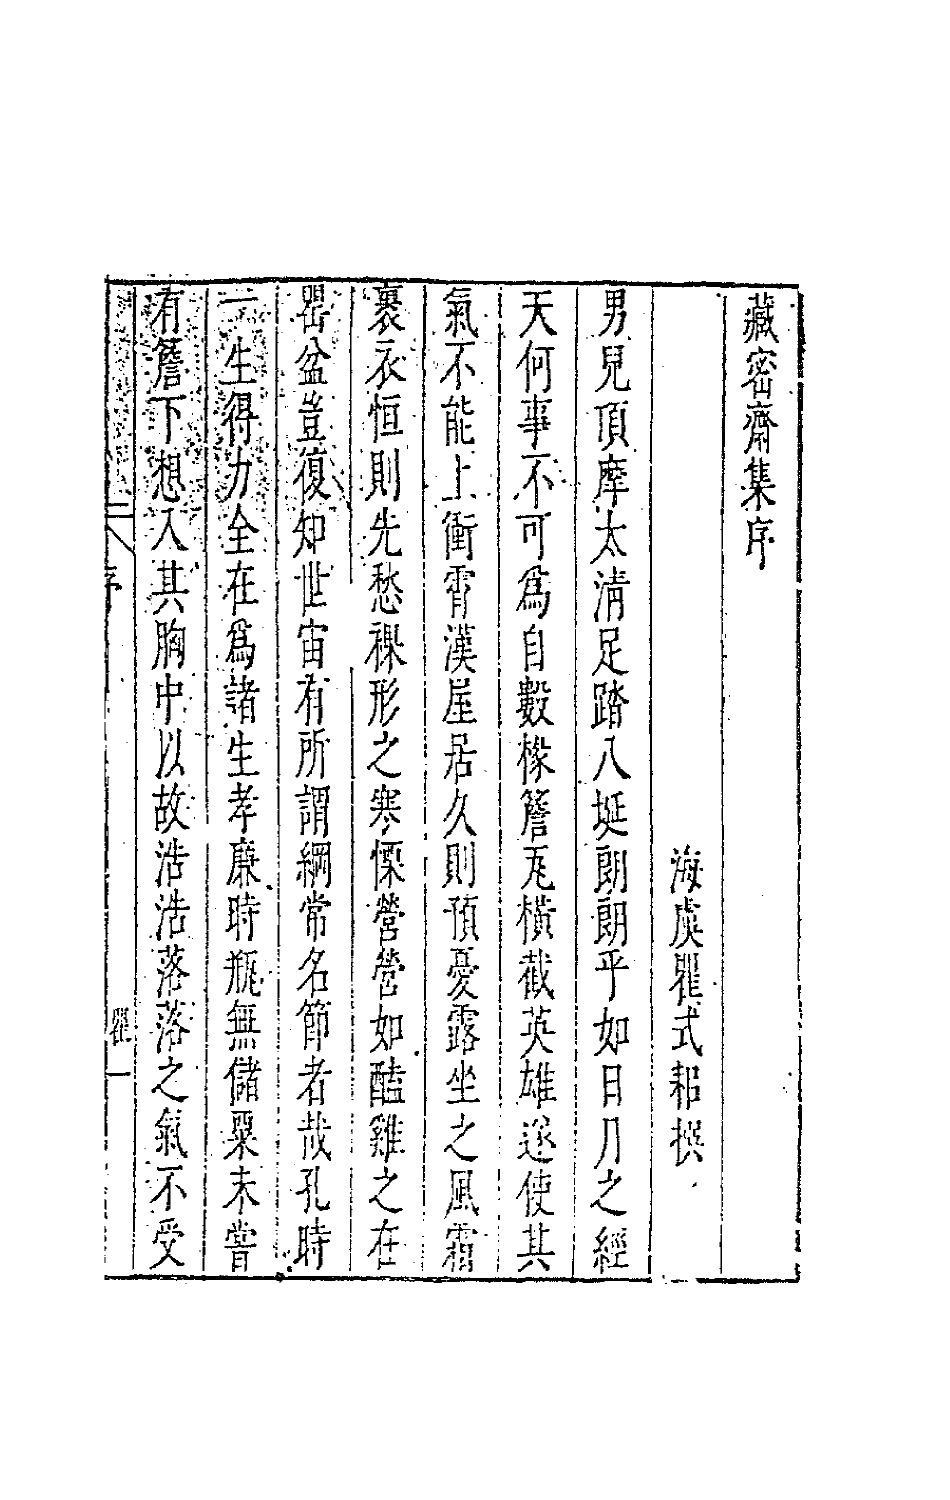 藏密齋集序
海虞瞿式耜撰
男兒頂摩太清足踏八埏朗朗乎如日月之經
天何事不可爲自數椽簷瓦橫截英雄遂使其
氣不能上衝霄漢屋居久則預憂露坐之風霜
裹衣恒則先愁裸形之寒慄營營如醯雞之在
罌盆豈復知世宙有所謂綱常名節者哉孔時
一生得力全在爲諸生孝廉時瓶無儲粟未嘗
有簷下想入其胸中以故浩浩落落之氣不受
序
瞿一